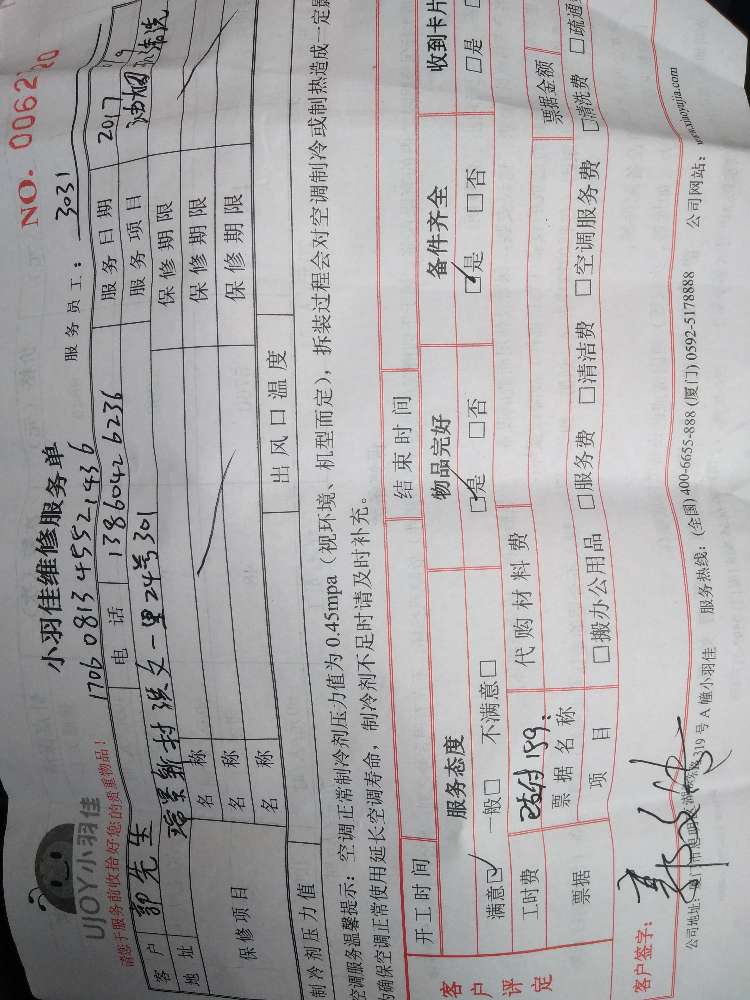 NO. 0062
UJOY小羽佳
小羽佳维修服务单
1706 0813 4552 1436
服务员工：3031
请您于服务前收拾好您的贵重物品！
客户 郭先生 电话 13860426236 服务日期 2017
地址 瑞景新村洪文一里24号301 服务项目
保修项目 名称 保修期限
名称 保修期限
名称 保修期限
制冷剂压力值 出风口温度
空调服务温馨提示：空调正常制冷剂压力值为 0.45mpa（视环境、机型而定），拆装过程会对空调制冷或制热造成一定
为确保空调正常使用延长空调寿命，制冷剂不足时请及时补充。
开工时间 结束时间
客户评定 服务态度 物品完好 备件齐全 收到卡片
满意☑ 一般□ 不满意□ ☑是 □否 ☑是 □否 □是
工时费 已付189. 代购材料费 票据金额
票据 票据名称
项目 □搬办公用品 □服务费 □清洁费 □空调服务费 □清洗费 □疏通
客户签字：
公司地址： 319号A幢小羽佳 服务热线：(全国) 400-6655-888 (厦门) 0592-5178888 公司网站：www.xiaoyujia.com